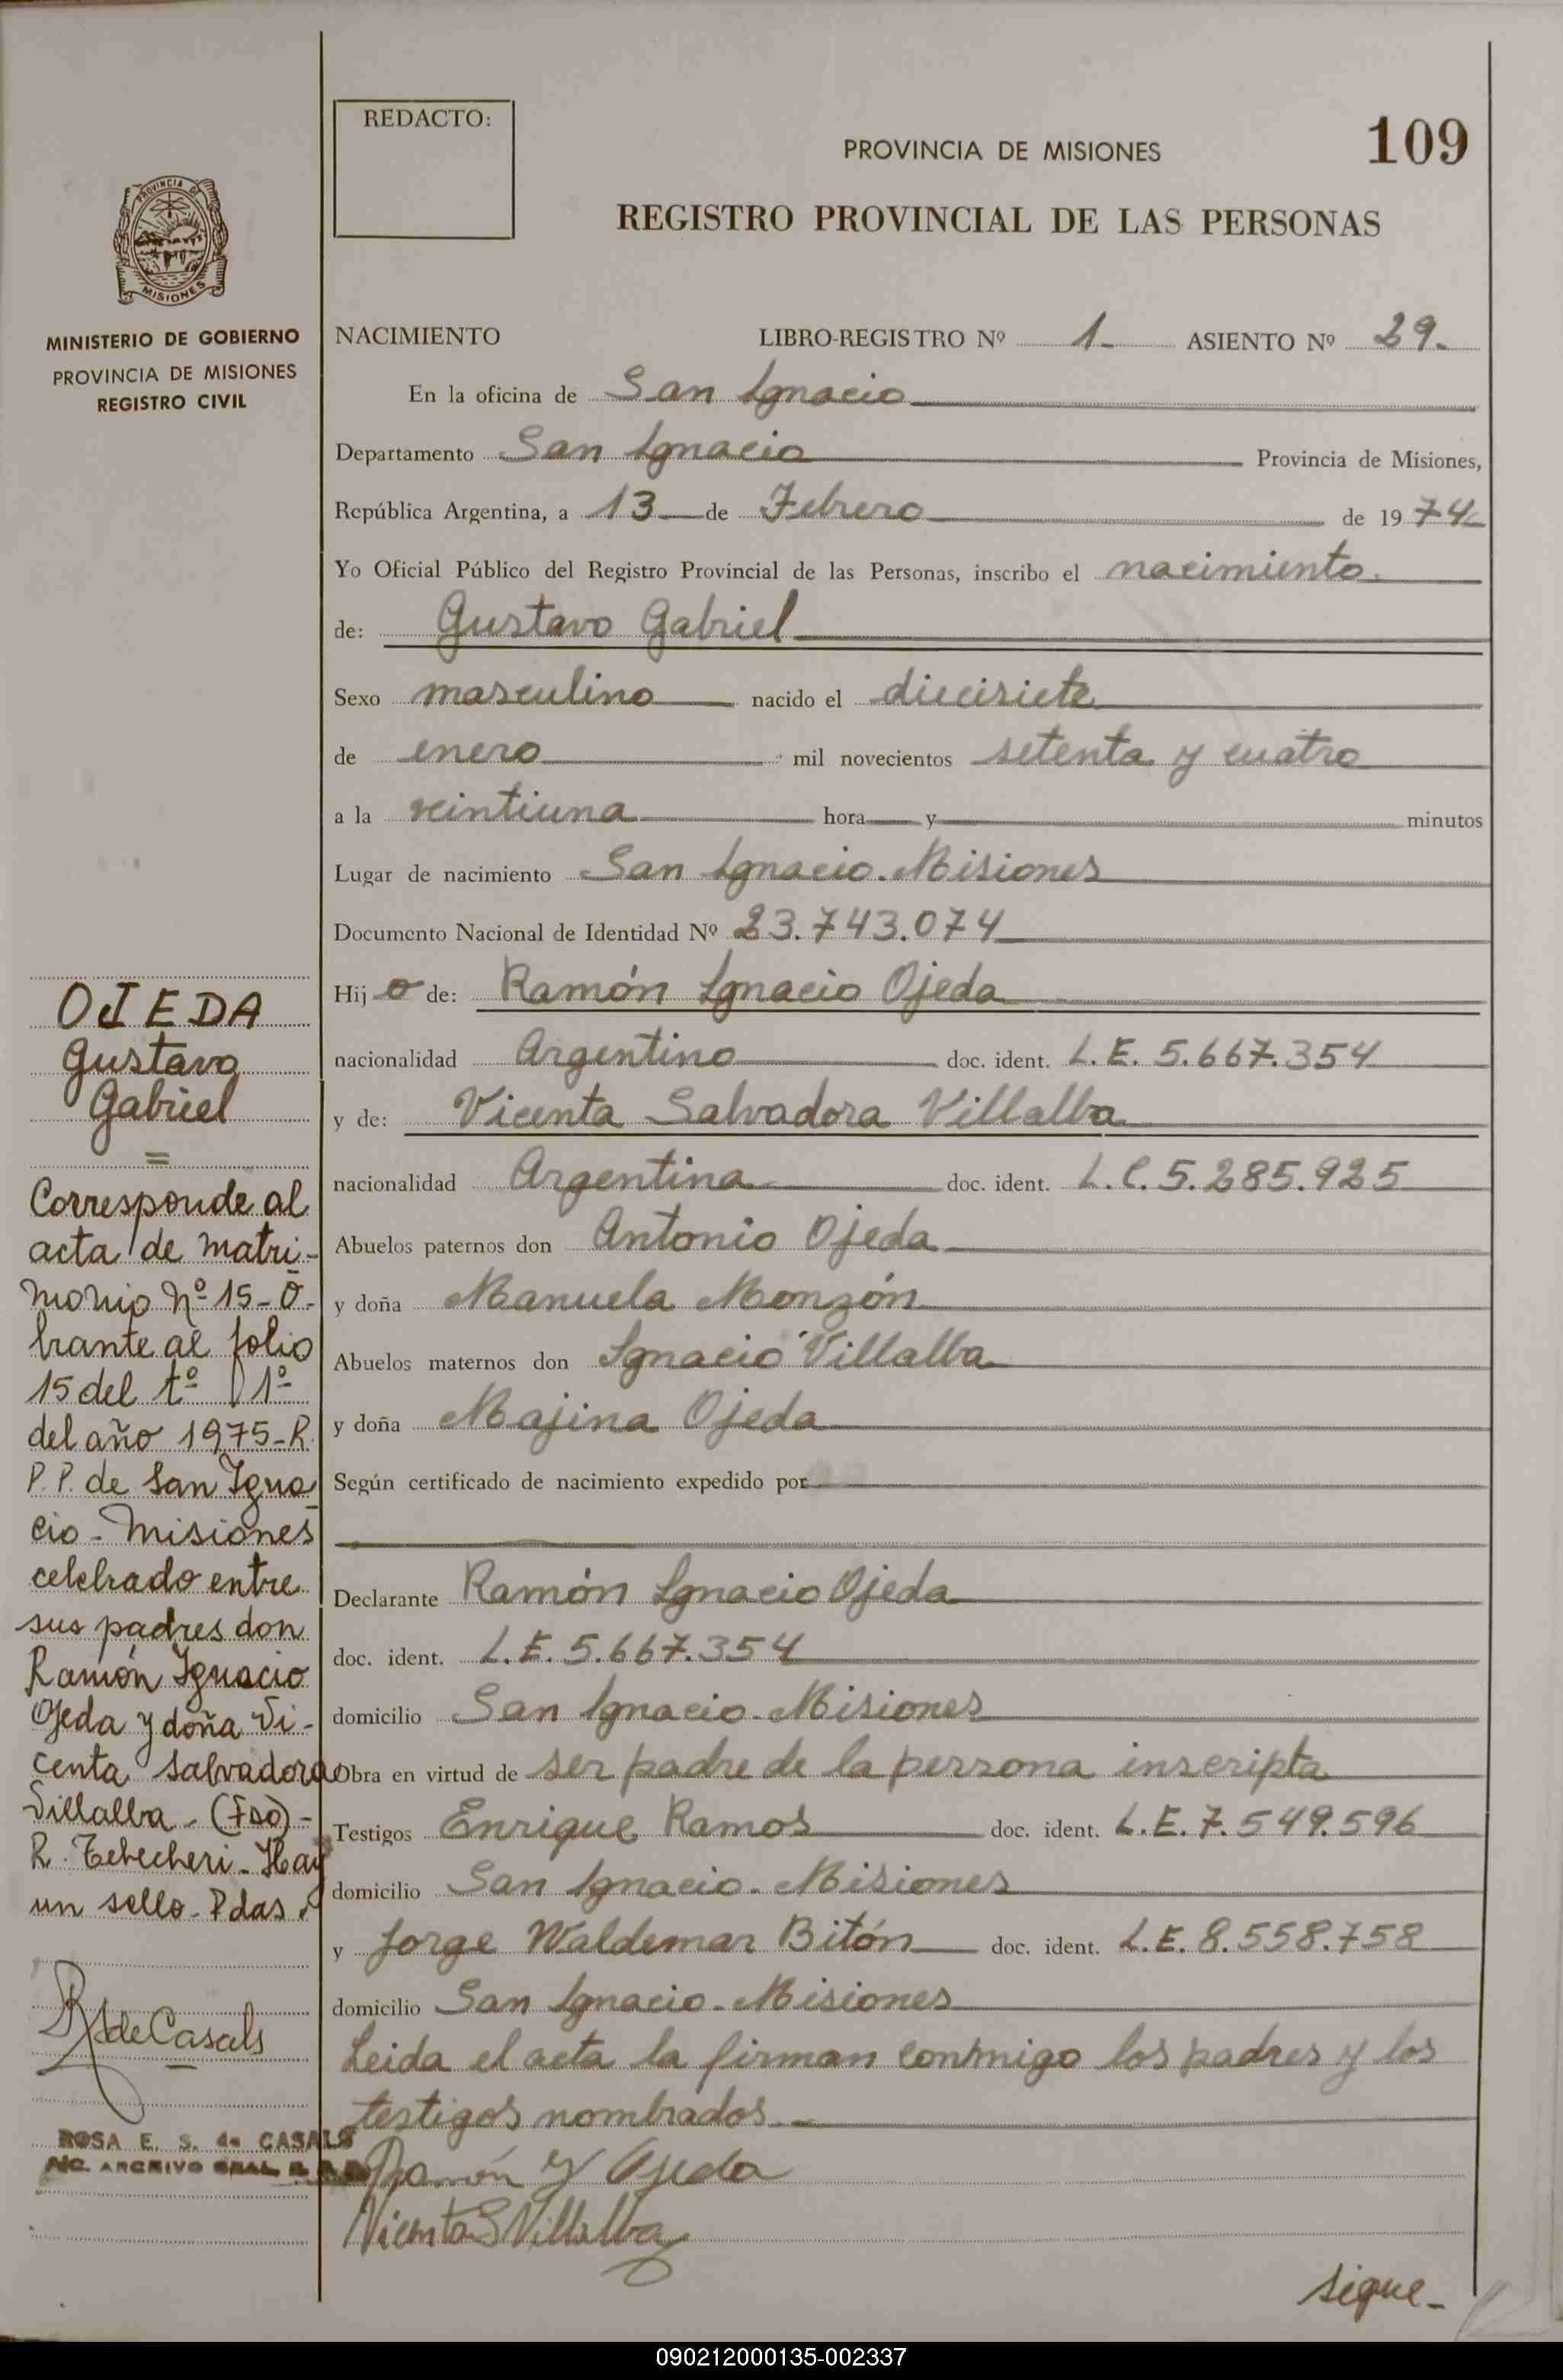 REDACTO:
PROVINCIA DE MISIONES
109
REGISTRO PROVINCIAL DE LAS PERSONAS
PROVINCIA DE
MISIONES
MINISTERIO DE GOBIERNO
PROVINCIA DE MISIONES
REGISTRO CIVIL
NACIMIENTO LIBRO-REGISTRO Nº 1- ASIENTO Nº 29.
En la oficina de San Ignacio
Departamento San Ignacio Provincia de Misiones,
República Argentina, a 13 de Febrero de 1974
Yo Oficial Público del Registro Provincial de las Personas, inscribo el nacimiento.
de: Gustavo Gabriel
Sexo masculino nacido el diecisiete
de enero mil novecientos setenta y cuatro
a la veintiuna hora y minutos
Lugar de nacimiento San Ignacio. Misiones
Documento Nacional de Identidad Nº 23.743.074
Hijo de: Ramón Ignacio Ojeda
nacionalidad Argentino doc. ident. L.E. 5.667.354
y de: Vicenta Salvadora Villalba
nacionalidad Argentina doc. ident. L.C. 5.285.925
Abuelos paternos don Antonio Ojeda
y doña Manuela Monzón
Abuelos maternos don Ignacio Villalba
y doña Majina Ojeda
Según certificado de nacimiento expedido por
Declarante Ramón Ignacio Ojeda
doc. ident. L.E. 5.667.354
domicilio San Ignacio. Misiones
Obra en virtud de ser padre de la persona inscripta
Testigos Enrique Ramos doc. ident. L.E. 7.549.596
domicilio San Ignacio. Misiones
y Jorge Waldemar Bitón doc. ident. L.E. 8.558.758
domicilio San Ignacio. Misiones
Leida el acta la firman conmigo los padres y los
testigos nombrados.-
Ramón Y Ojeda
Vicenta S Villalba
sigue-
OJEDA
Gustavo
Gabriel
=
Corresponde al
acta de matri-
monio Nº 15-O-
brante al folio
15 del tº 1º
del año 1975-R.
P.P. de San Igna
cio- Misiones
celebrado entre
sus padres don
Ramón Ignacio
Ojeda y doña Vi-
centa Salvadora
Villalba- (Fdo)-
R. - Hay
un sello- Pdas.
de Casals
ROSA E. S. de CASALS
ARCHIVO GRAL
090212000135-002337